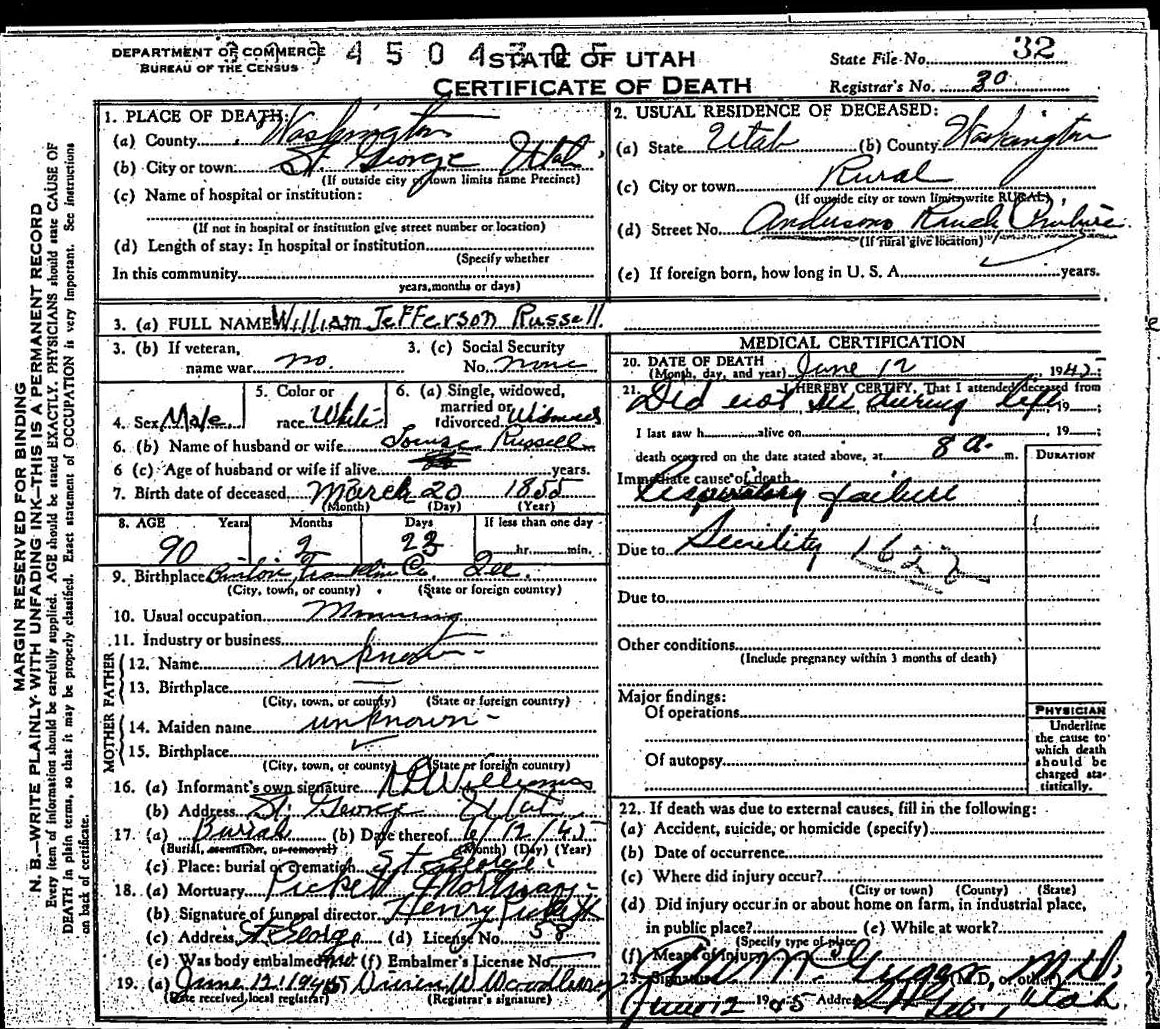 DEPARTMENT OF COMMERCE
BUREAU OF THE CENSUS
STATE OF UTAH
CERTIFICATE OF DEATH
State File No. 32
Registrar's No. 30
MARGIN RESERVED FOR BINDING
N. B.—WRITE PLAINLY WITH UNFADING INK—THIS IS A PERMANENT RECORD
Every item of information should be carefully supplied. AGE should be stated EXACTLY. PHYSICIANS should state CAUSE OF
DEATH in plain terms, so that it may be properly classified. Exact statement of OCCUPATION is very important. See instructions
on back of certificate.
1. PLACE OF DEATH:
(a) County Washington
(b) City or town St. George Utah
(If outside city or town limits name Precinct)
(c) Name of hospital or institution:
(If not in hospital or institution give street number or location)
(d) Length of stay: In hospital or institution
(Specify whether
In this community
years, months or days)
2. USUAL RESIDENCE OF DECEASED:
(a) State Utah (b) County Washington
(c) City or town Rural
(If outside city or town limits write RURAL)
(d) Street No. Andersons Ranch
(If rural give location)
(e) If foreign born, how long in U. S. A. years.
3. (a) FULL NAME William Jefferson Russell
3. (b) If veteran,
name war no.
3. (c) Social Security
No. none
4. Sex Male
5. Color or
race White
6. (a) Single, widowed,
married or
divorced Widowed
6. (b) Name of husband or wife Louise Russell
6 (c) Age of husband or wife if alive years.
7. Birth date of deceased March 20 1855
(Month) (Day) (Year)
8. AGE Years Months Days If less than one day
90 2 23 hr. min.
9. Birthplace Franklin Co.
(City, town, or county) (State or foreign country)
10. Usual occupation Mining
11. Industry or business
FATHER
12. Name unknown
13. Birthplace
(City, town, or county) (State or foreign country)
MOTHER
14. Maiden name unknown
15. Birthplace
(City, town, or county) (State or foreign country)
16. (a) Informant's own signature Williams
(b) Address St. George Utah
17. (a) Burial (b) Date thereof 6/12/45
(Burial, cremation, or removal) (Month) (Day) (Year)
(c) Place: burial or cremation St. George
18. (a) Mortuary Pickett Mortuary
(b) Signature of funeral director Henry Pickett
(c) Address St George (d) License No. 58
(e) Was body embalmed no (f) Embalmer's License No.
19. (a) June 12 1945
(Date received local registrar) (Registrar's signature)
MEDICAL CERTIFICATION
20. DATE OF DEATH June 12 1945
(Month, day, and year)
21. I HEREBY CERTIFY, That I attended deceased from
Did not see during life 19
I last saw h alive on 19
death occurred on the date stated above, at 8 a. m.
DURATION
Immediate cause of death
Respiratory failure
Due to Senility 162
Due to
Other conditions
(Include pregnancy within 3 months of death)
Major findings:
Of operations
Of autopsy
PHYSICIAN
Underline
the cause to
which death
should be
charged sta-
tistically.
22. If death was due to external causes, fill in the following:
(a) Accident, suicide, or homicide (specify)
(b) Date of occurrence
(c) Where did injury occur?
(City or town) (County) (State)
(d) Did injury occur in or about home on farm, in industrial place,
in public place? (e) While at work?
(Specify type of place)
(f) Means of injury
23. Signature M.D.
(M.D. or other)
June 12 1945 Address Utah